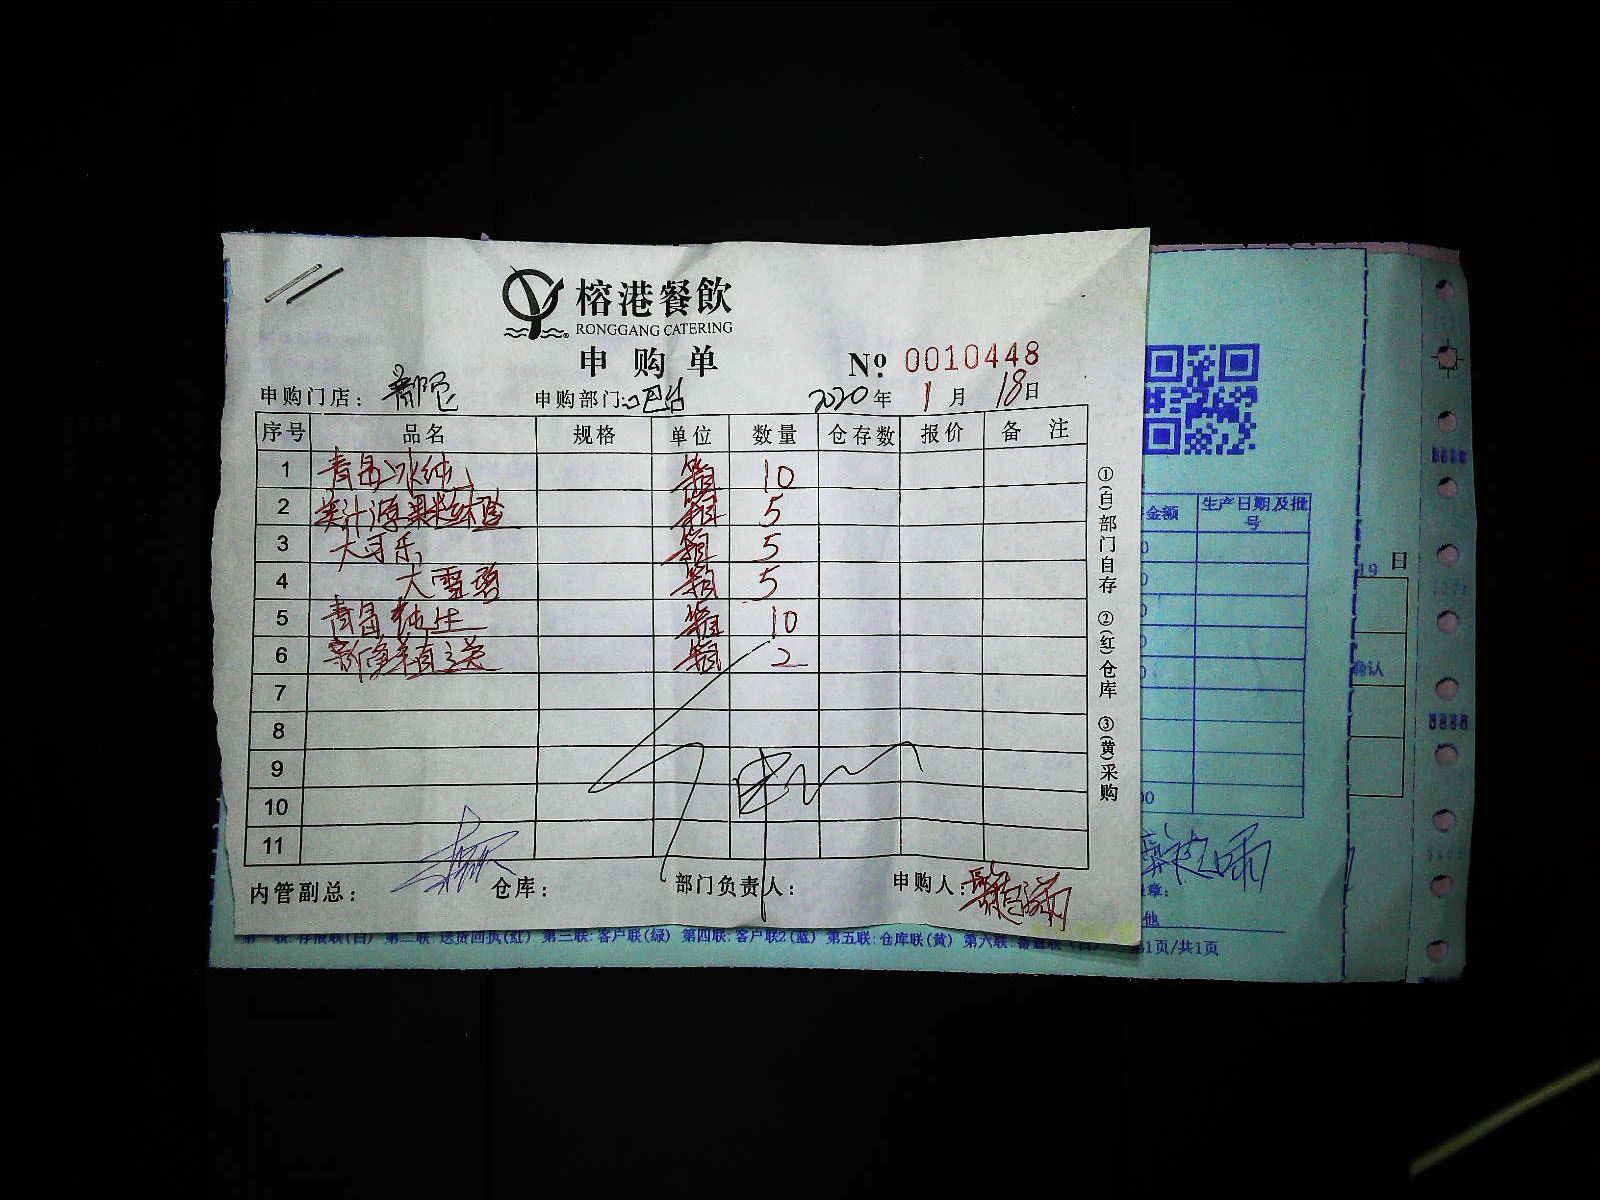 榕港餐飲
RONGGANG CATERING
申购单 № 0010448
申购门店: 申购部门:吧台 2020年 1月 18日
序号 品名 规格 单位 数量 仓存数 报价 备 注
1 青岛冰纯 箱 10
2 美汁源果粒 箱 5
3 大可乐 箱 5
4 大雪碧 箱 5
5 青岛纯生 箱 10
6 箱 2
7
8
9
10
11
内管副总: 仓库: 部门负责人: 申购人:
①(白)部门自存 ②(红)仓库 ③(黄)采购
金额 生产日期及批号
日
19
确认
章:
他
第一联:存根联(白) 第二联:送货回执(红) 第三联:客户联(绿) 第四联:客户联2(蓝) 第五联:仓库联(黄) 第六联: 第1页/共1页